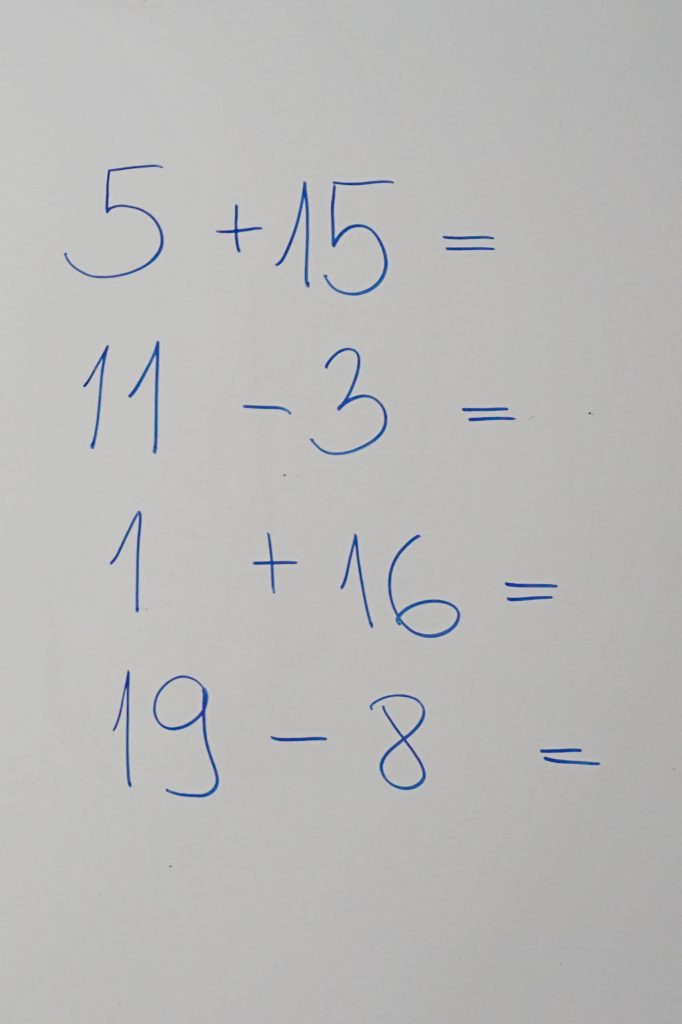 5 + 15 =
11 - 3 =
1 + 16 =
19 - 8 =